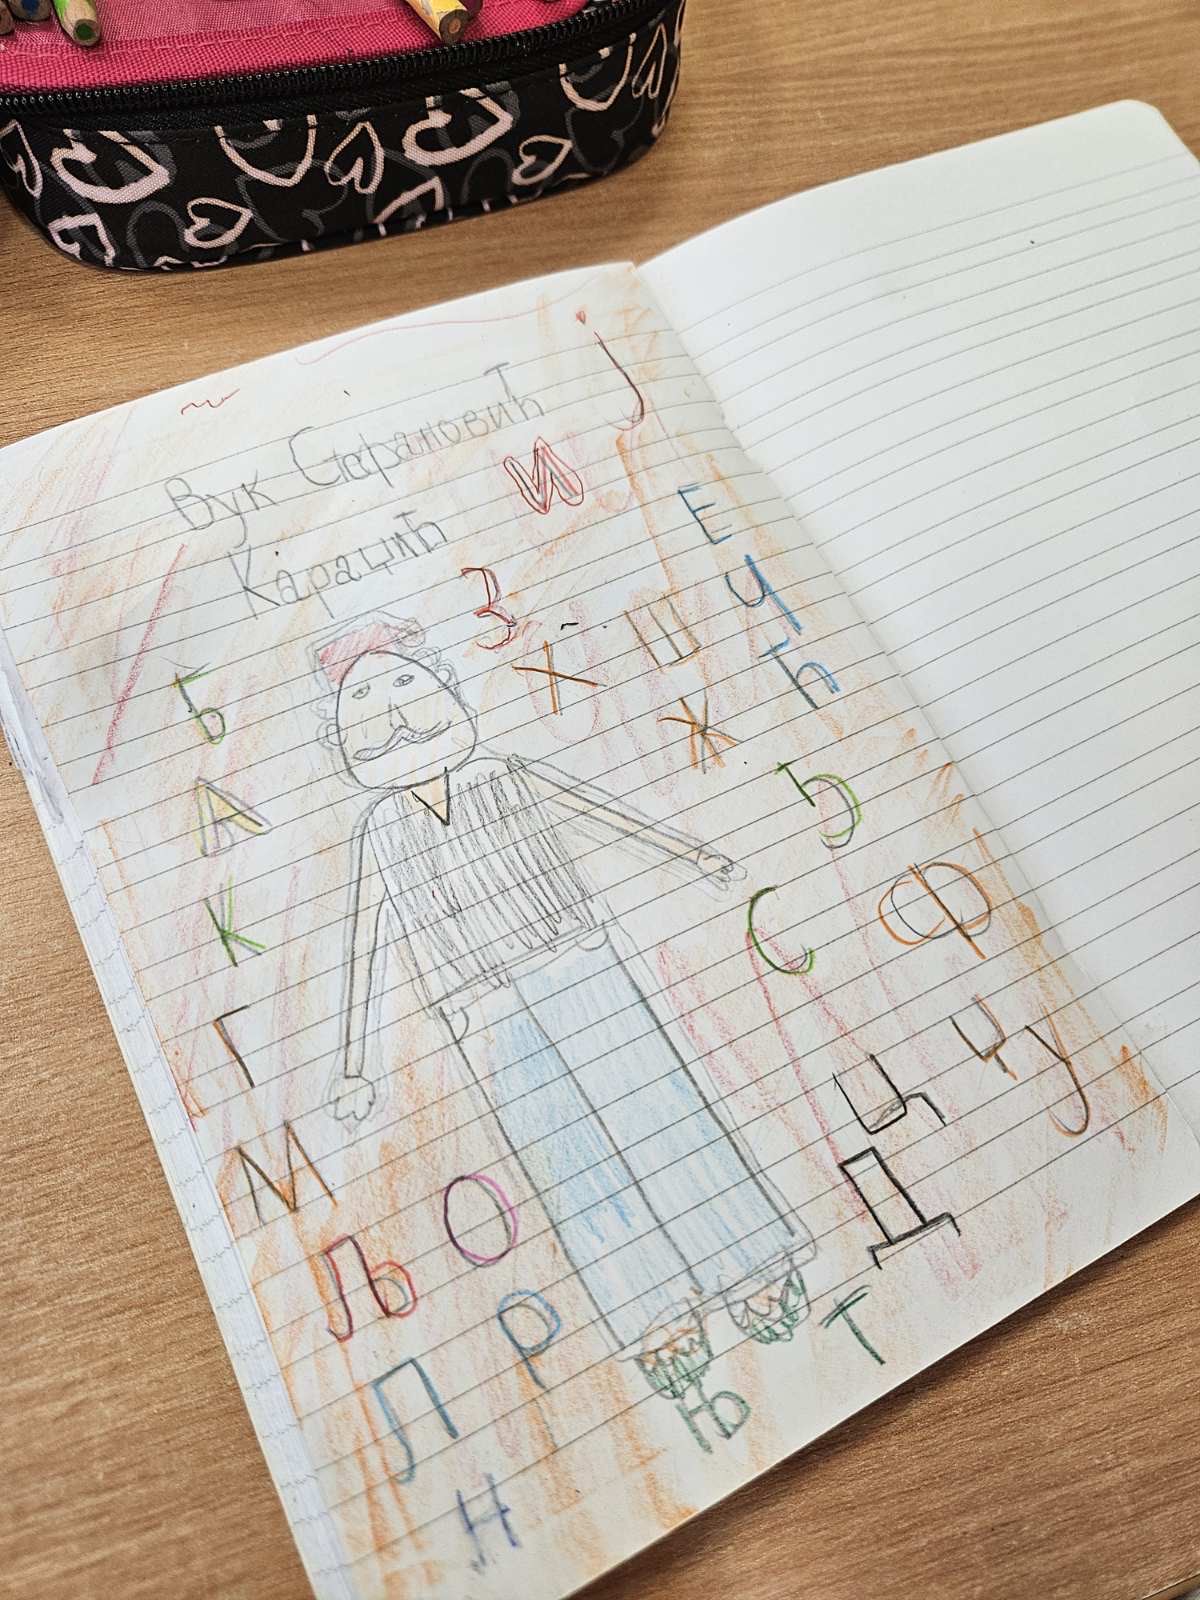 Вук Стефановић
Караџић
Ј
И
Е
З
Х
Ш
Ч
Ћ
Б
Ж
А
Ђ
К
С
Ф
Г
Ц
Џ
У
М
О
Д
Љ
Р
Т
Л
Њ
Н